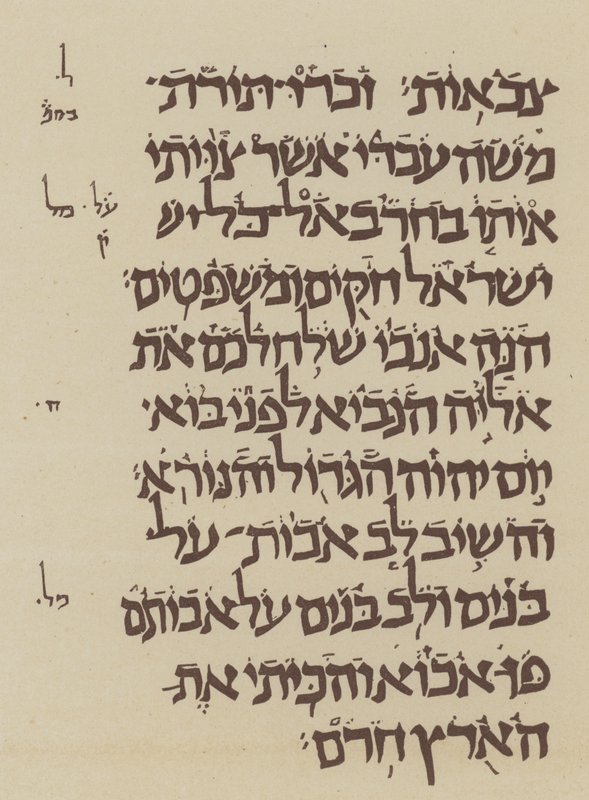 צבאות זכרו תורת
משה עבדי אשר צויתי
אותו בחרב אל כל יש
ישראל חקים ומשפטים
הנה אנכי שלח לכם את
אליה הנביא לפני בוא
יום יהוה הגדול והנורא
והשיב לב אבות על
בנים ולב בנים על אבותם
פן אבוא והכיתי את
הארץ חרם
ל
על מל
ק
ח
מל